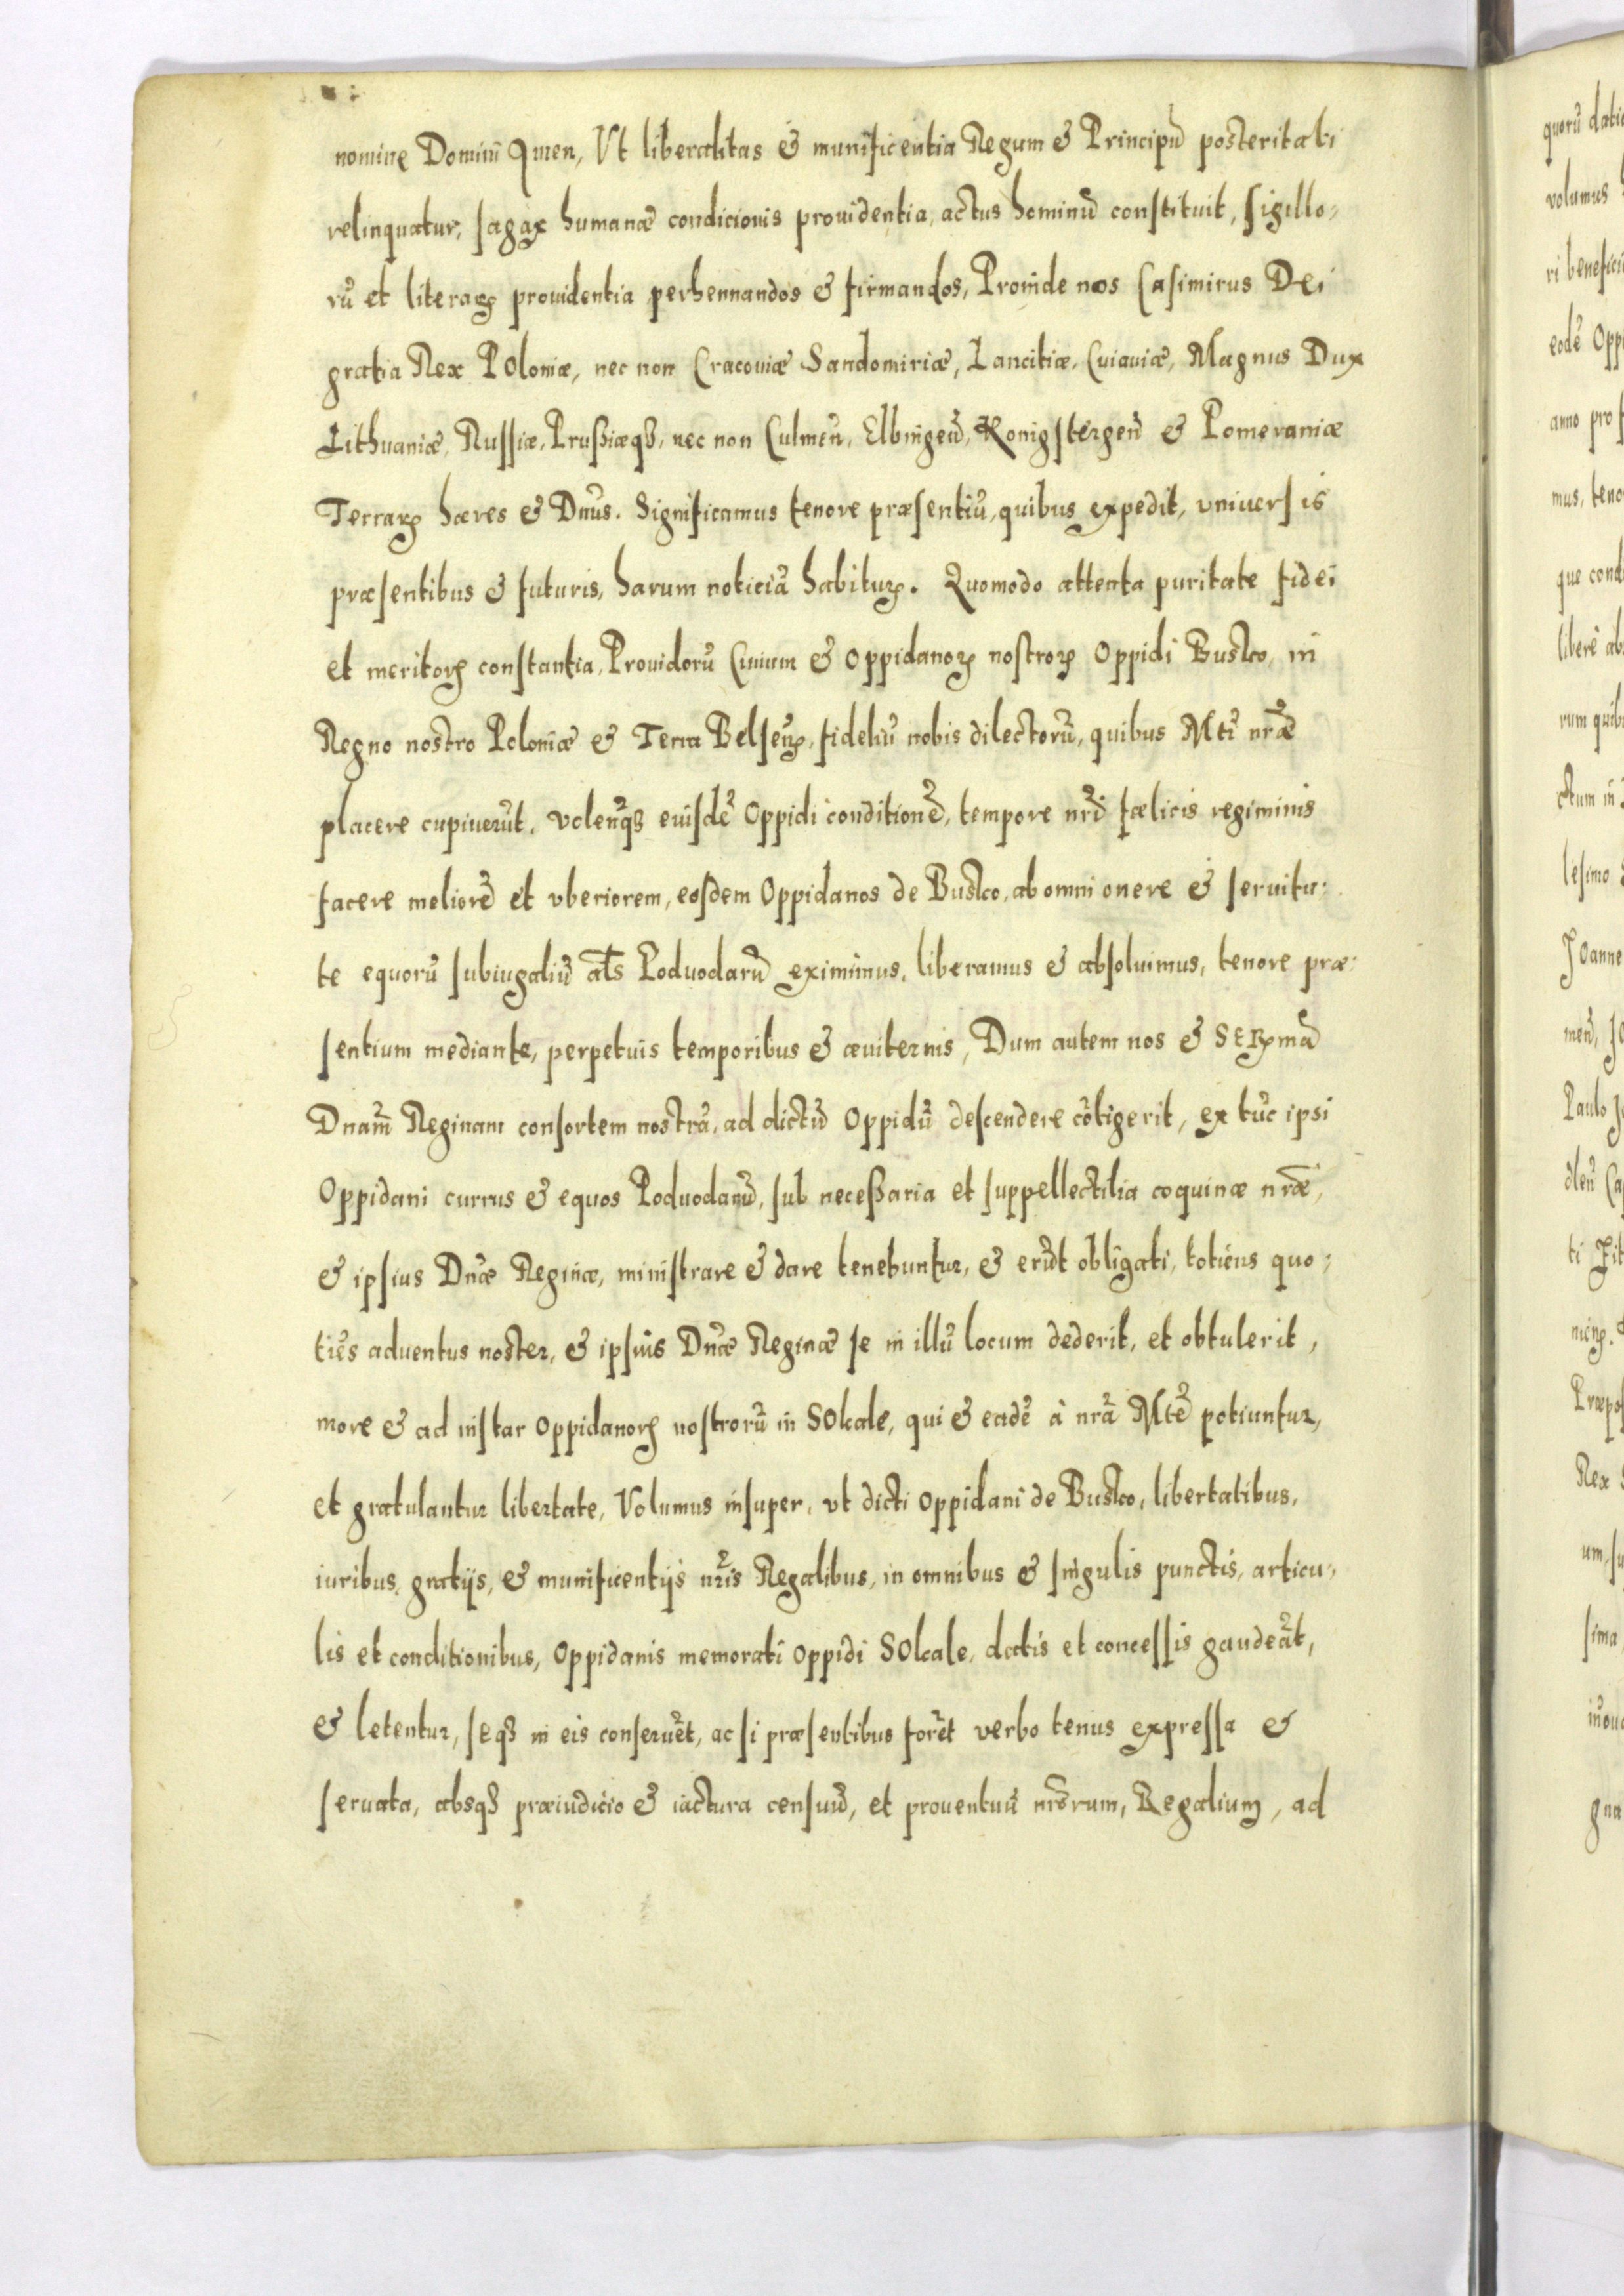 nomine Domini Amen, Vt liberalitas & munificentia Regum & Principū posteritati
relinquatur, sagax humanæ condicionis prouidentia, actus hominū constituit, sigillo:
rū et literaꝝ prouidentia perhennandos & firmandos, Proinde nos Casimirus Dei
gratia Rex Poloniæ, nec non Cracouiæ Sandomiriæ, Lancitiæ, Cuiauiæ, Magnus Dux
Lithuaniæ, Russiæ, Prußiæqȝ, nec non Culmeñ, Elbingeñ, Konigstergeñ & Pomeraniæ
Terraꝝ hæres & Dñus. Significamus tenore præsentiū, quibus expedit, vniuersis
præsentibus & futuris, harum noticiā habituꝝ. Quomodo attenta puritate fidei
et meritoꝝ constantia, Prouidorū Ciuium & Oppidanoꝝ nostroꝝ Oppidi Busko, in
Regno nostro Poloniæ & Terra Belseñ, fideliū nobis dilectorū, quibus Mti nr̄æ
placere cupiuerūt, volenqȝ eiusdē Oppidi conditionē, tempore nr̄i fælicis regiminis
facere meliorē et vberiorem, eosdem Oppidanos de Busko, ab omni onere & seruitu:
te equorū subiugaliū als Poduodarū eximimus, liberamus & absoluimus, tenore præ:
sentium mediante, perpetuis temporibus & æuiternis, Dum autem nos & Serꝝmā
Dnam̄ Reginam consortem nostrā, ad dictū Oppidū descendere cōtigerit, ex tūc ipsi
Oppidani currus & equos Poduodarū, sub neceßaria et suppellectilia coquinæ nr̄æ,
& ipsius Dn̄æ Reginæ, ministrare & dare tenebuntur, & erūt obligati, totiens quo:
tiēs aduentus noster, & ipsius Dn̄æ Reginæ se in illū locum dederit, et obtulerit,
more & ad instar Oppidanoꝝ nostrorū in SOkale, qui & eadē à nr̄a Mtē potiuntur,
et gratulantur libertate, Volumus insuper, vt dicti Oppidani de Busko, libertatibus,
iuribus, gratijs, & munificentijs nr̄is Regalibus, in omnibus & singulis punctis, articu:
lis et conditionibus, Oppidanis memorati Oppidi SOkale, datis et concessis gaudeāt,
& letentur, seqȝ in eis conseruēt, ac si præsentibus forēt verbo tenus expressa &
seruata, absqȝ præiudicio & iactura censuū, et prouentuū nr̄orum, Regalium, ad